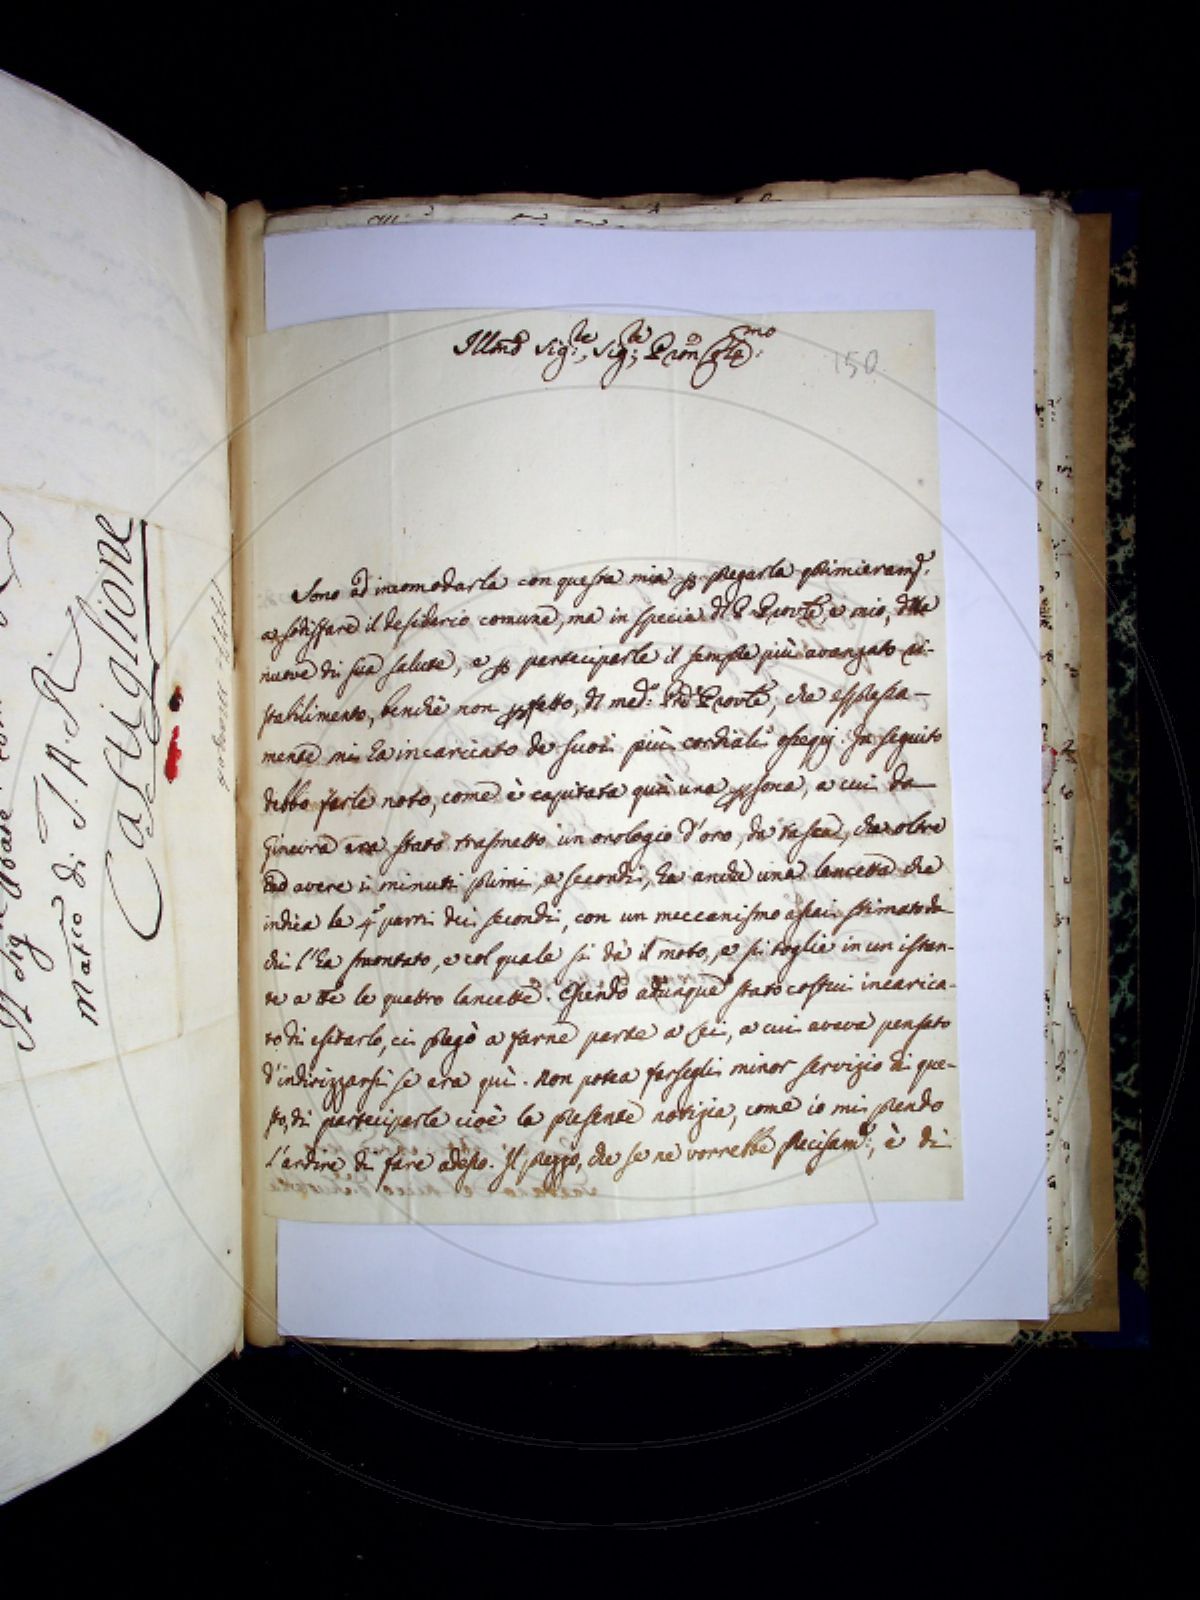 Illmo Sig:re, Sig:re Pron Colmo:
150
Sono ad incomodarla con questa mia p pregarla primieramte:
a sodisfare il desiderio comune, ma in specie del P Provle, e mio, delle
nuove di sua salute, e p parteciparle il sempre più avanzato ri-
stabilimento, benchè non pfetto, del med:o Pre Provle, che espressa-
mente mi ha incaricato de suoi più cordiali ossequj. In seguito
debbo farle noto, come è capitata quì una psona, a cui da
Ginevra era stato trasmesso un orologio d'oro, da tasca, che oltre
ad avere i minuti primi, e secondi, ha anche una lancetta che
indica le 4e parti dei secondi, con un meccanismo assai stimato da
chi l'ha smontato, e col quale si dà il moto, e si toglie in un istan-
te a tte le quattro lancette. Essendo adunque stato costui incarica-
to di esitarlo, ci pregò a farne parte a Lei, a cui aveva pensato
d'indirizzarsi se era quì. Non potea farsegli minor servizio di que-
sto, di parteciparle cioè la presente notizia, come io mi prendo
l'ardire di fare adesso. Il prezzo, che se ne vorrebbe precisamte:, è di
Il Sig Abate
Matco di S. A. R.
Castiglione